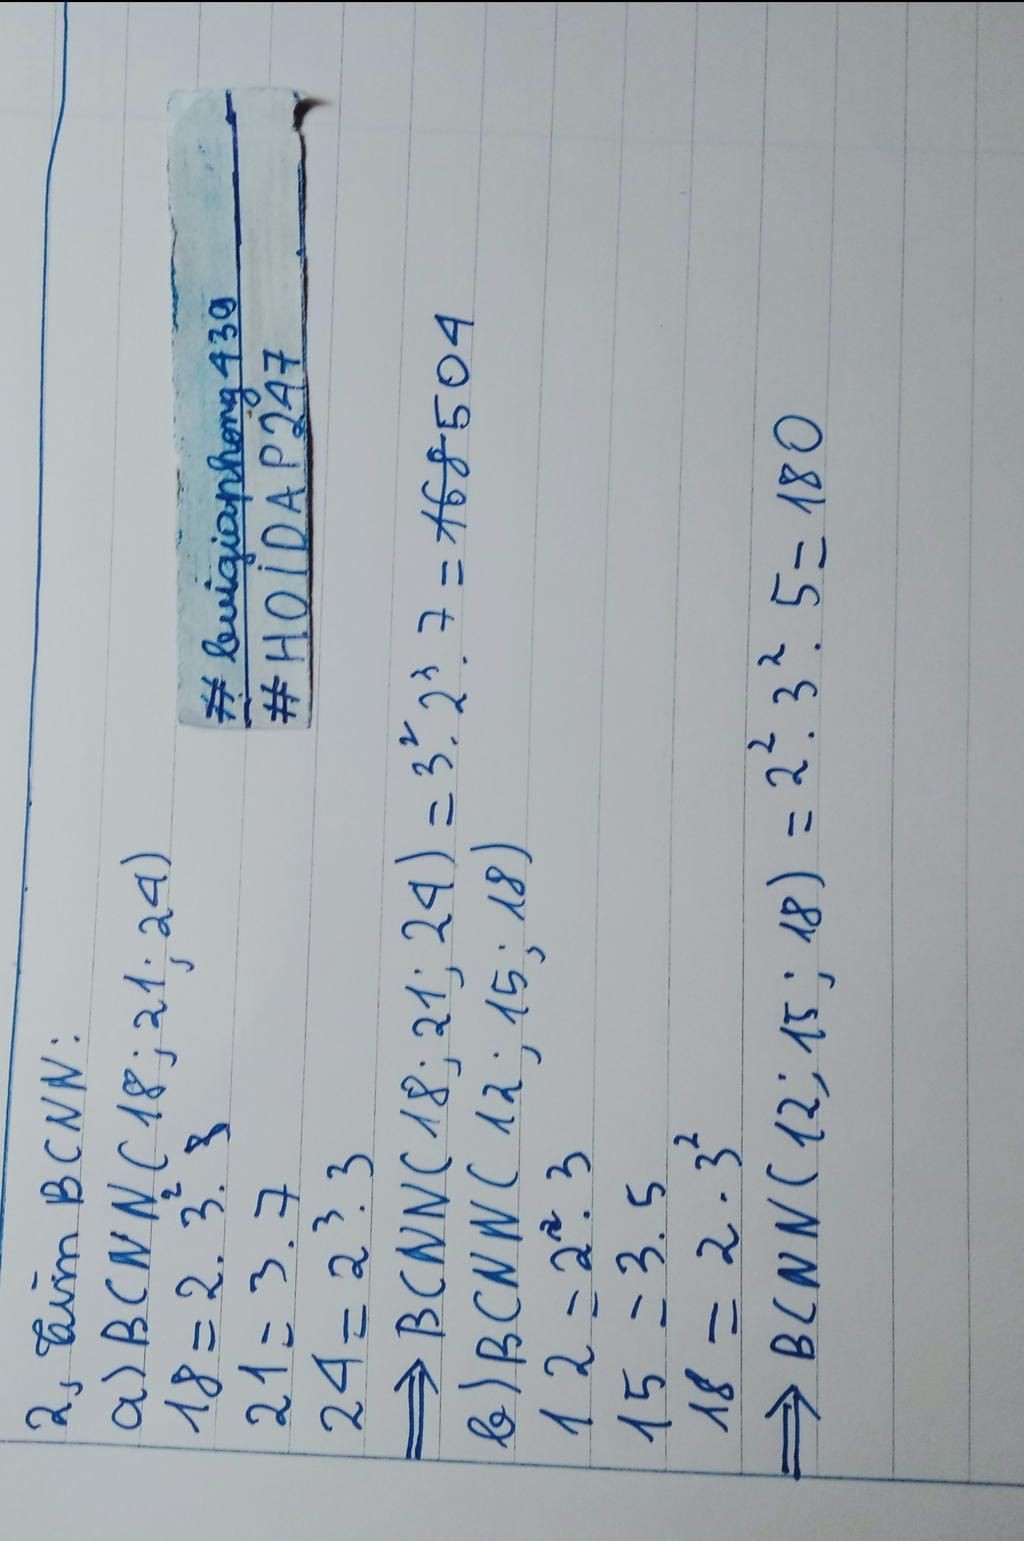 2, Tìm BCNN:
a) BCNN (18; 21; 24)
18 = 2. 3². 3
21 = 3. 7
24 = 2³. 3
⇒ BCNN (18; 21; 24) = 3². 2³. 7 = 168 504
b) BCNN (12; 15; 18)
12 = 2². 3
15 = 3. 5
18 = 2. 3²
⇒ BCNN (12; 15; 18) = 2². 3². 5 = 180
# buigiaphong439
# HOIDAP247